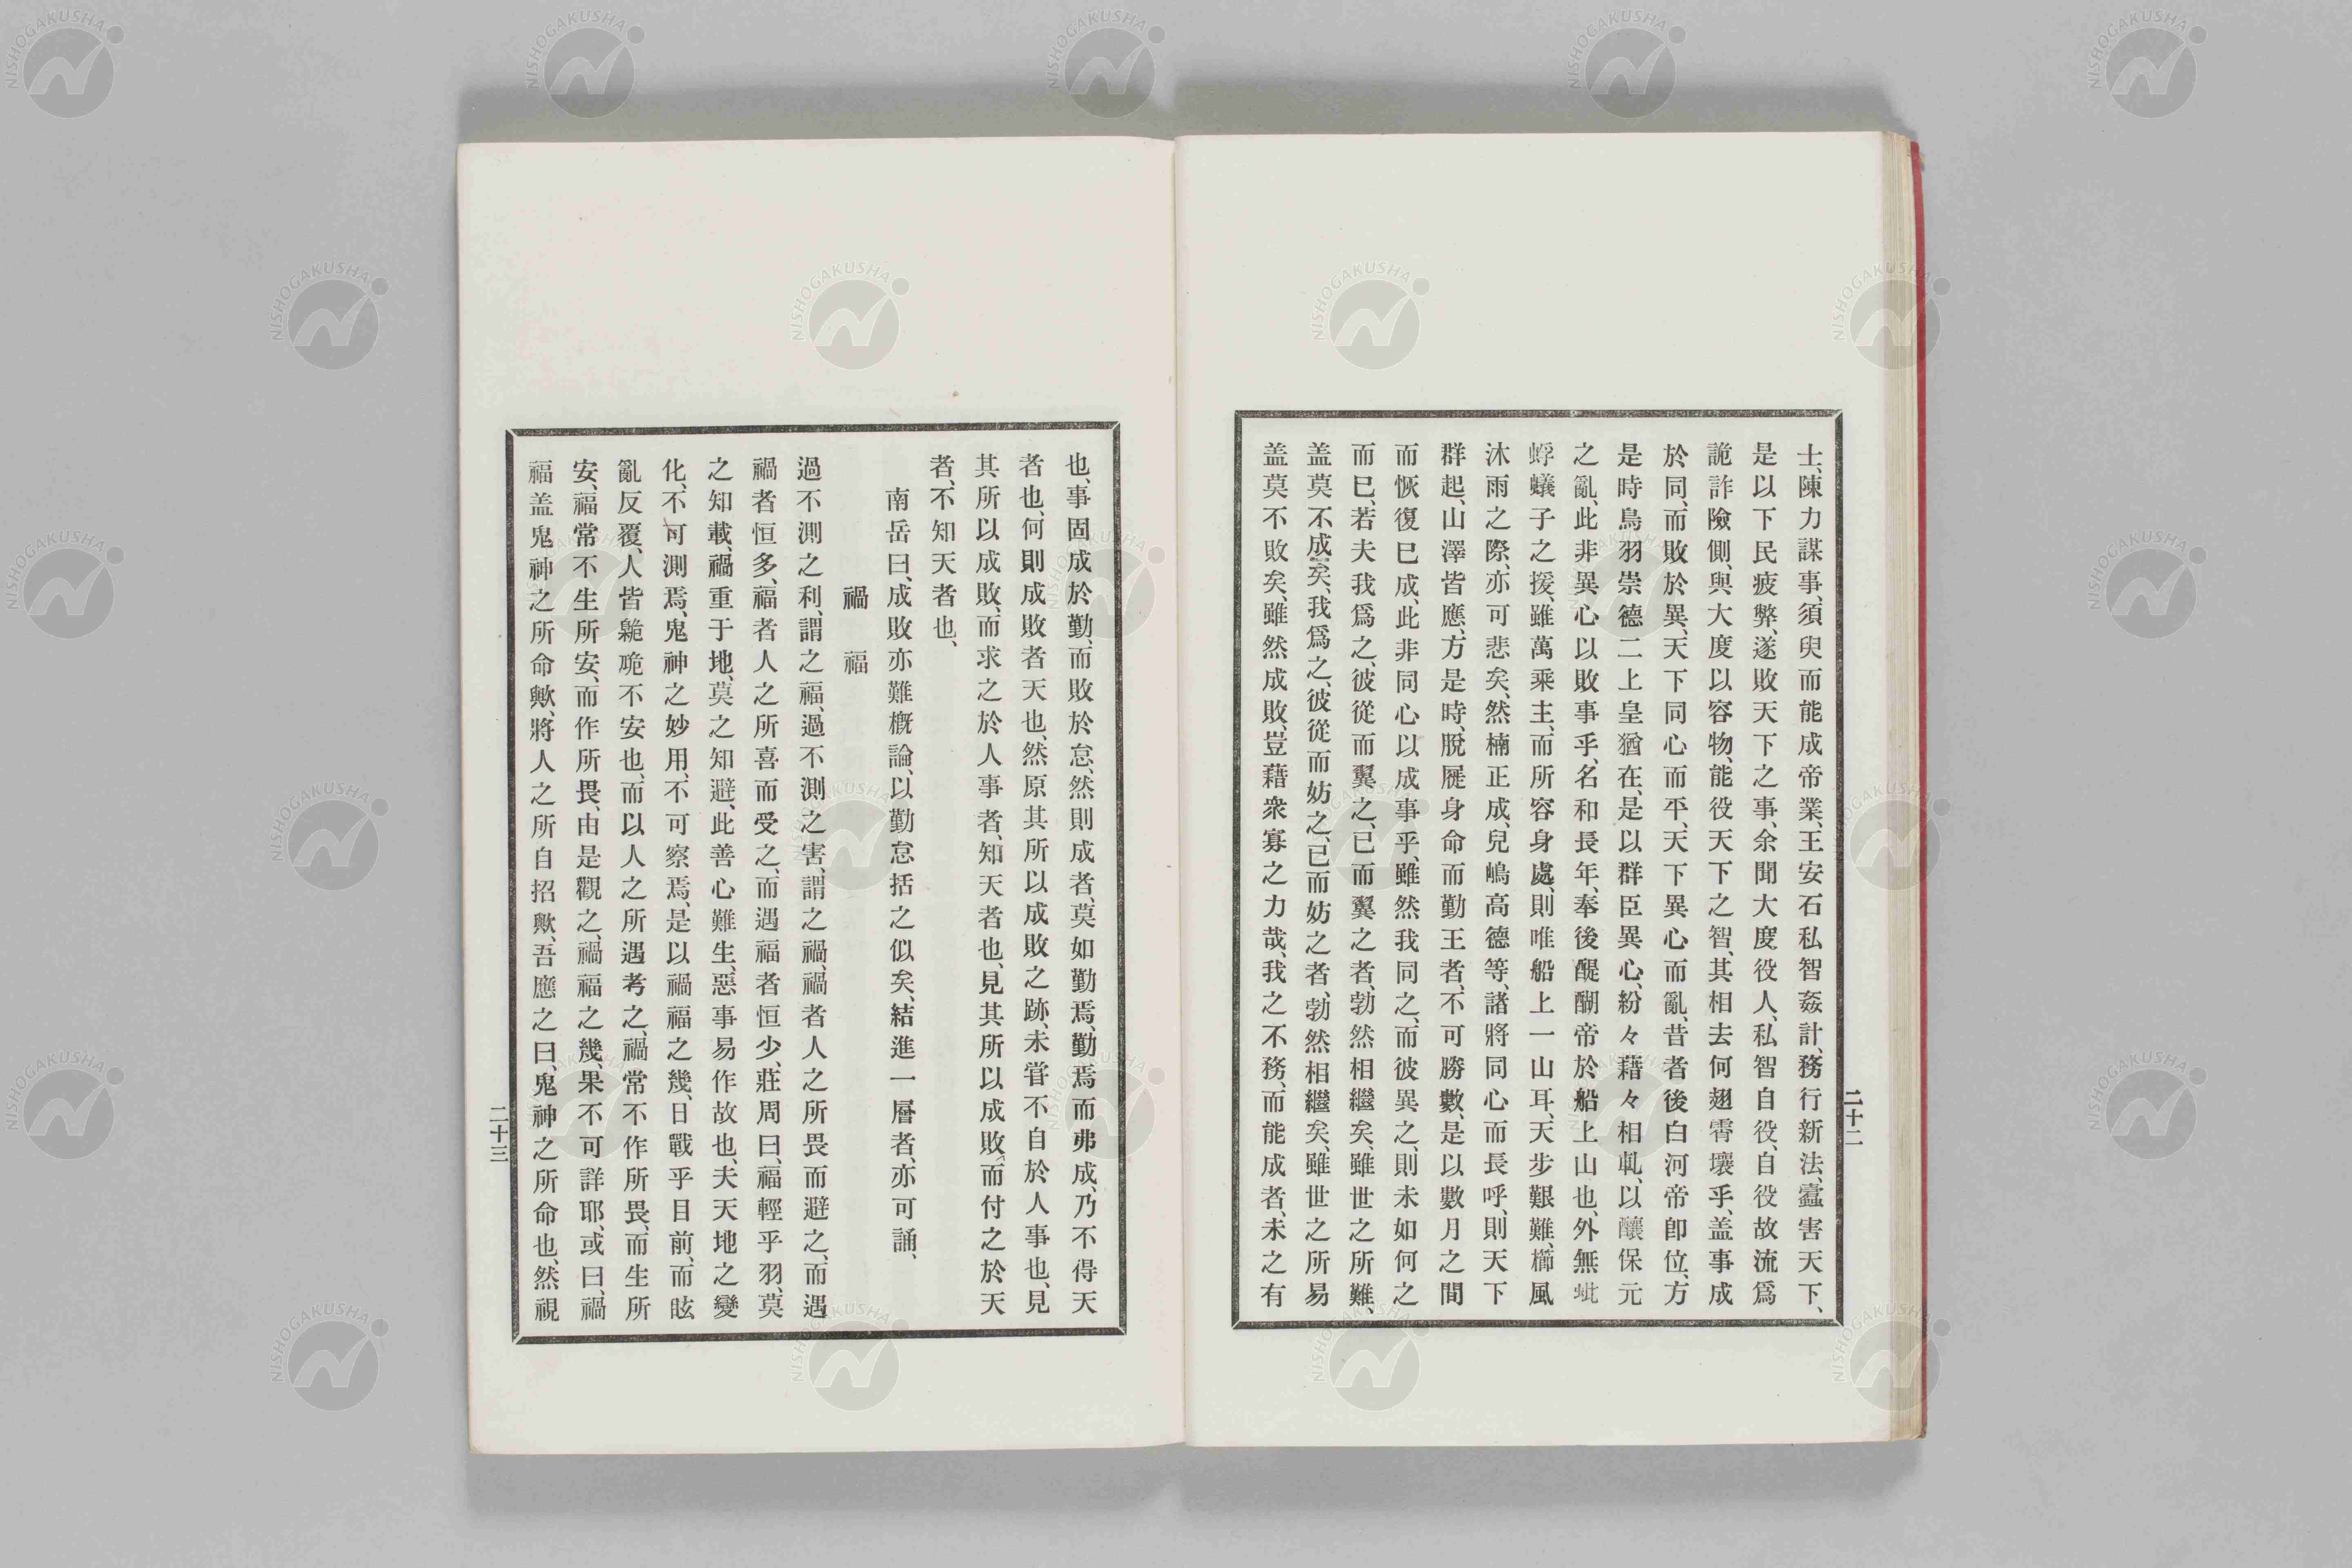 士、陳力謀事、須臾而能成帝業、王安石私智姦計、務行新法、蠹害天下、
是以下民疲弊、遂敗天下之事、余聞大度役人、私智自役、自役故流爲
詭詐險側、與大度以容物、能役天下之智、其相去何翅霄壤乎、盖事成
於同、而敗於異、天下同心而平、天下異心而亂、昔者後白河帝卽位、方
是時鳥羽崇德二上皇猶在、是以群臣異心、紛々藉々相軋、以釀保元
之亂、此非異心以敗事乎、名和長年、奉後醍醐帝於船上山也、外無蚍
蜉蟻子之援、雖萬乘主、而所容身處、則唯船上一山耳、天步艱難、櫛風
沐雨之際、亦可悲矣、然楠正成、兒嶋高德等、諸將同心而長呼、則天下
群起、山澤皆應、方是時、脫屣身命而勤王者、不可勝數、是以數月之間
而恢復已成、此非同心以成事乎、雖然我同之、而彼異之、則未如何之
而已、若夫我爲之、彼從而翼之、已而翼之者、勃然相繼矣、雖世之所難、
盖莫不成矣、我爲之、彼從而妨之、已而妨之者、勃然相繼矣、雖世之所易
盖莫不敗矣、雖然成敗、豈藉衆寡之力哉、我之不務、而能成者、未之有
二十二
也、事固成於勤、而敗於怠、然則成者、莫如勤焉、勤焉而弗成、乃不得天
者也、何則成敗者天也、然原其所以成敗之跡、未甞不自於人事也、見
其所以成敗、而求之於人事者、知天者也、見其所以成敗、而付之於天
者、不知天者也、
南岳曰、成敗亦難槪論、以勤怠括之似矣、結進一層者、亦可誦、
禍福
過不測之利、謂之福、過不測之害、謂之禍、禍者人之所畏而避之、而遇
禍者恒多、福者人之所喜而受之、而遇福者恒少、莊周曰、福輕乎羽、莫
之知載、禍重于地、莫之知避、此善心難生、惡事易作故也、夫天地之變
化、不可測焉、鬼神之妙用、不可察焉、是以禍福之幾、日戰乎目前、而眩
亂反覆、人皆臲卼不安也、而以人之所遇考之、禍常不作所畏、而生所
安、福常不生所安、而作所畏、由是觀之、禍福之幾、果不可詳耶、或曰、禍
福盖鬼神之所命歟、將人之所自招歟、吾應之曰、鬼神之所命也、然視
二十三